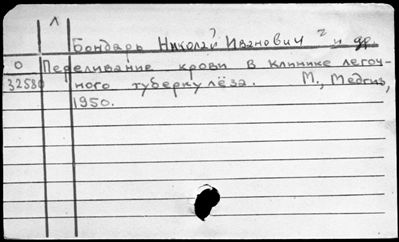 Бондарь Николай Иванович и др.
О Переливание крови в клинике легоч-
32580 ного туберкулёза. М., Медгиз,
1950.